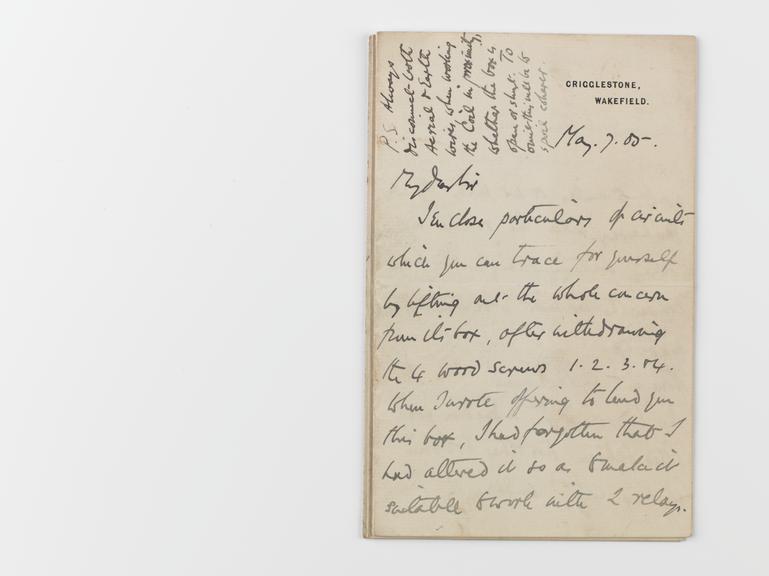 CRIGGLESTONE,
WAKEFIELD.
May. 7. 05.
My dear Sir
I enclose particulars of circuits
which you can trace for yourself
by lifting out the whole concern
from its box, after withdrawing
the 4 wood screws 1. 2. 3. & 4.
When I wrote offering to lend you
this box, I had forgotten that I
had altered it so as to make it
suitable to work with 2 relays.
P.S. Always
disconnect both
Aerial & Earth
wires, when working
the Coil in proximity,
whether the box is
open or shut. To
omit this will be to
spoil coherer.